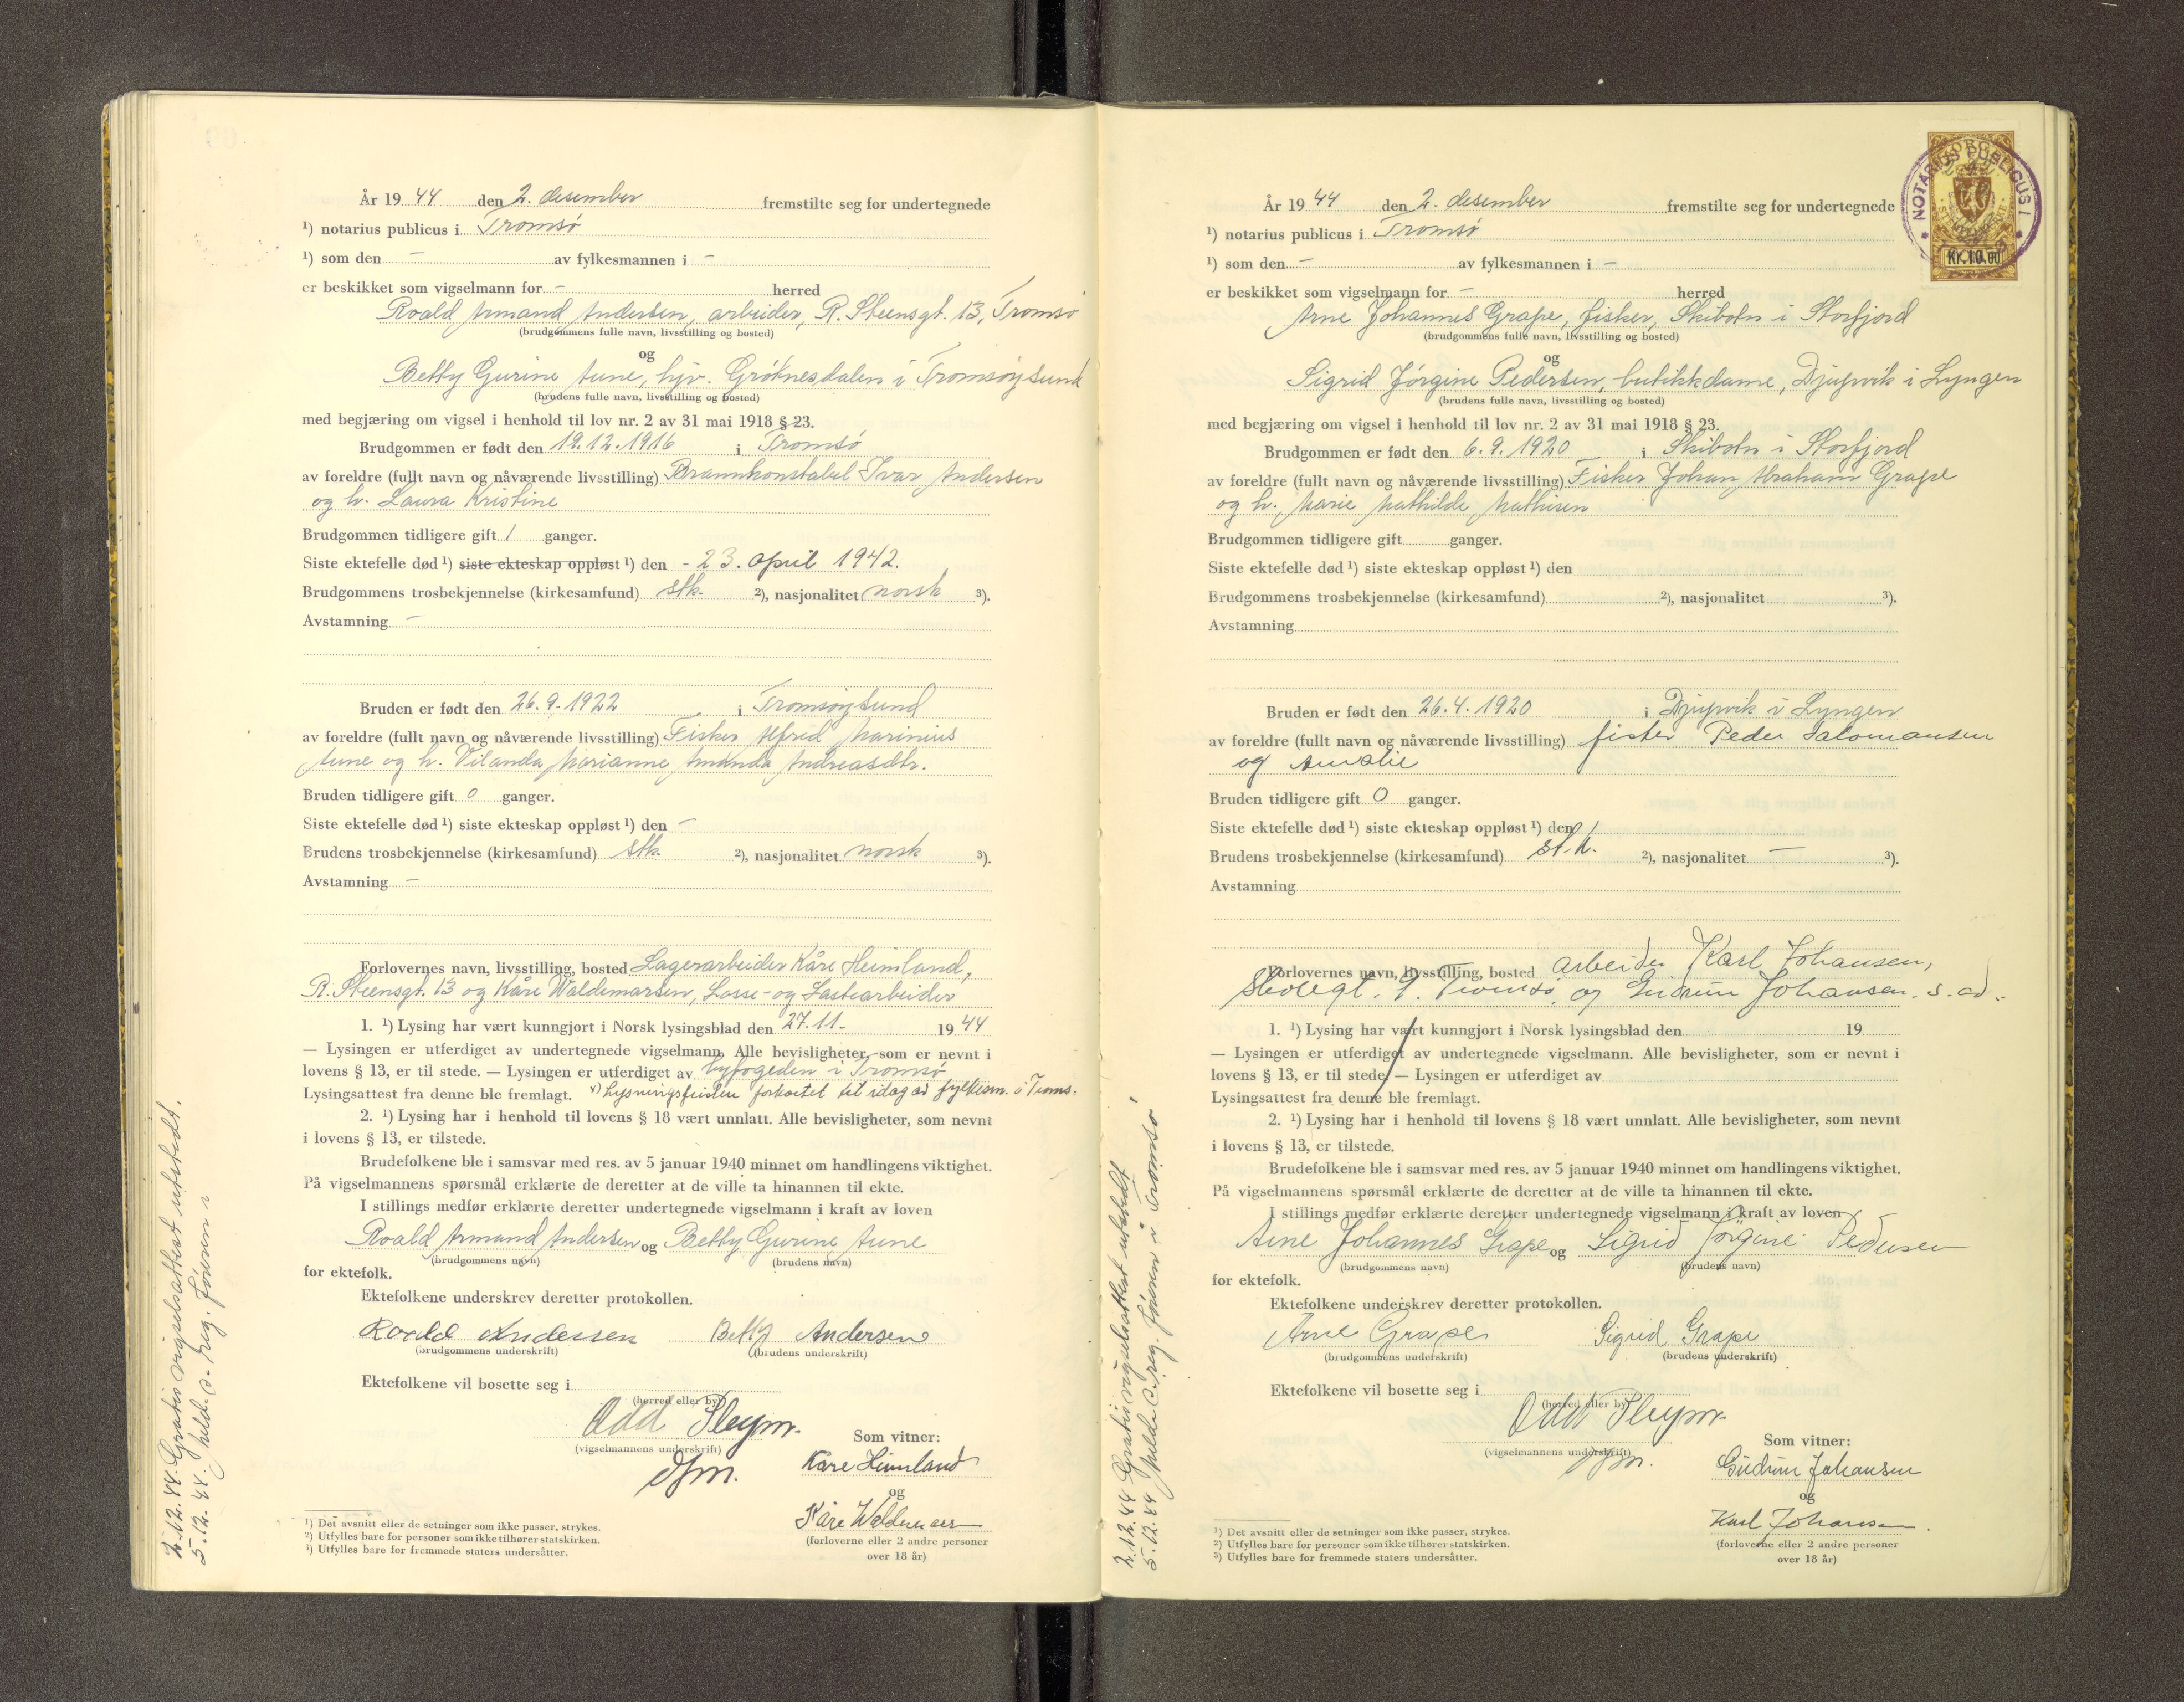 År 19 44 den 2. desember fremstilte seg for undertegnede
¹) notarius publicus i Tromsø
¹) som den - av fylkesmannen i -
er beskikket som vigselmann for - herred
Roald Armand Andersen, arbeider, R. Steensgt. 13, Tromsø
(brudgommens fulle navn, livsstilling og bosted)
og
Betty Gurine Aune, hjv. Grøtnesdalen i Tromsøysund
(brudens fulle navn, livsstilling og bosted)
med begjæring om vigsel i henhold til lov nr. 2 av 31 mai 1918 § 23.
Brudgommen er født den 19.12.1916 i Tromsø
av foreldre (fullt navn og nåværende livsstilling) Brannkonstabel Ivar Andersen
og h. Laura Kristine
Brudgommen tidligere gift 1 ganger.
Siste ektefelle død ¹) siste ekteskap oppløst ¹) den - 23. april 1942.
Brudgommens trosbekjennelse (kirkesamfund) stk. ²), nasjonalitet norsk ³).
Avstamning -
Bruden er født den 26.9.1922 i Tromsøysund
av foreldre (fullt navn og nåværende livsstilling) Fisker Alfred Marinius
Aune og h. Vilanda Marianne Amanda Andreasdtr.
Bruden tidligere gift 0 ganger.
Siste ektefelle død ¹) siste ekteskap oppløst ¹) den -
Brudens trosbekjennelse (kirkesamfund) stk. ²), nasjonalitet norsk ³).
Avstamning -
Forlovernes navn, livsstilling, bosted Lagerarbeider Kåre Heimland,
R. Steensgt. 13 og Kåre Waldemarsen, Losse- og Lastearbeider
1. ¹) Lysing har vært kunngjort i Norsk lysingsblad den 27.11.- 19 44
— Lysingen er utferdiget av undertegnede vigselmann. Alle bevisligheter, som er nevnt i
lovens § 13, er til stede. — Lysingen er utferdiget av byfogden i Tromsø
Lysingsattest fra denne ble fremlagt. Lysningsfristen forkortet til idag av fylkesm. i Troms.
2. ¹) Lysing har i henhold til lovens § 18 vært unnlatt. Alle bevisligheter, som nevnt
i lovens § 13, er tilstede.
Brudefolkene ble i samsvar med res. av 5 januar 1940 minnet om handlingens viktighet.
På vigselmannens spørsmål erklærte de deretter at de ville ta hinannen til ekte.
I stillings medfør erklærte deretter undertegnede vigselmann i kraft av loven
Roald Armand Andersen og Betty Gurine Aune
(brudgommens navn) (brudens navn)
for ektefolk.
Ektefolkene underskrev deretter protokollen.
Roald Andersen Betty Andersen
(brudgommens underskrift) (brudens underskrift)
Ektefolkene vil bosette seg i
(herred eller by)
Odd Pleym.
(vigselmannens underskrift)
Som vitner:
Kåre Heimland
og
Kåre Waldemars
(forloverne eller 2 andre personer
over 18 år)
¹) Det avsnitt eller de setninger som ikke passer, strykes.
²) Utfylles bare for personer som ikke tilhører statskirken.
³) Utfylles bare for fremmede staters undersåtter.
2.12.44. Gratis vigselsattest utstedt.
5.12.44. meld. s. reg. føreren i
År 19 44 den 2. desember fremstilte seg for undertegnede
¹) notarius publicus i Tromsø
¹) som den - av fylkesmannen i -
er beskikket som vigselmann for - herred
Arne Johannes Grape, fisker, Skibotn i Storfjord
(brudgommens fulle navn, livsstilling og bosted)
og
Sigrid Jørgine Pedersen, butikkdame, Djupvik i Lyngen
(brudens fulle navn, livsstilling og bosted)
med begjæring om vigsel i henhold til lov nr. 2 av 31 mai 1918 § 23.
Brudgommen er født den 6.9.1920 i Skibotn i Storfjord
av foreldre (fullt navn og nåværende livsstilling) Fisker Johan Abraham Grape
og h. Marie Mathilde Mathisen
Brudgommen tidligere gift ganger.
Siste ektefelle død ¹) siste ekteskap oppløst ¹) den
Brudgommens trosbekjennelse (kirkesamfund) ²), nasjonalitet ³).
Avstamning
Bruden er født den 26.4.1920 i Djupvik i Lyngen
av foreldre (fullt navn og nåværende livsstilling) fisker Peder Salomonsen
og Amalie
Bruden tidligere gift 0 ganger.
Siste ektefelle død ¹) siste ekteskap oppløst ¹) den /
Brudens trosbekjennelse (kirkesamfund) st.k. ²), nasjonalitet — ³).
Avstamning
Forlovernes navn, livsstilling, bosted arbeider Karl Johansen,
Skolegt. 9. Tromsø, og Gudrun Johansen. s. ad.
1. ¹) Lysing har vært kunngjort i Norsk lysingsblad den 19
— Lysingen er utferdiget av undertegnede vigselmann. Alle bevisligheter, som er nevnt i
lovens § 13, er til stede. — Lysingen er utferdiget av
Lysingsattest fra denne ble fremlagt.
2. ¹) Lysing har i henhold til lovens § 18 vært unnlatt. Alle bevisligheter, som nevnt
i lovens § 13, er tilstede.
Brudefolkene ble i samsvar med res. av 5 januar 1940 minnet om handlingens viktighet.
På vigselmannens spørsmål erklærte de deretter at de ville ta hinannen til ekte.
I stillings medfør erklærte deretter undertegnede vigselmann i kraft av loven
Arne Johannes Grape og Sigrid Jørgine Pedersen
(brudgommens navn) (brudens navn)
for ektefolk.
Ektefolkene underskrev deretter protokollen.
Arne Grape Sigrid Grape
(brudgommens underskrift) (brudens underskrift)
Ektefolkene vil bosette seg i
(herred eller by)
Odd Pleym.
(vigselmannens underskrift)
Som vitner:
Gudrun Johansen
og
Karl Johansen.
(forloverne eller 2 andre personer
over 18 år)
¹) Det avsnitt eller de setninger som ikke passer, strykes.
²) Utfylles bare for personer som ikke tilhører statskirken.
³) Utfylles bare for fremmede staters undersåtter.
2.12.44 Gratis vigselsattest utstedt
5.12.44 Meld. s. reg. føreren i Tromsø
NOTARIUS PUBLICUS I
Kr. 10.00